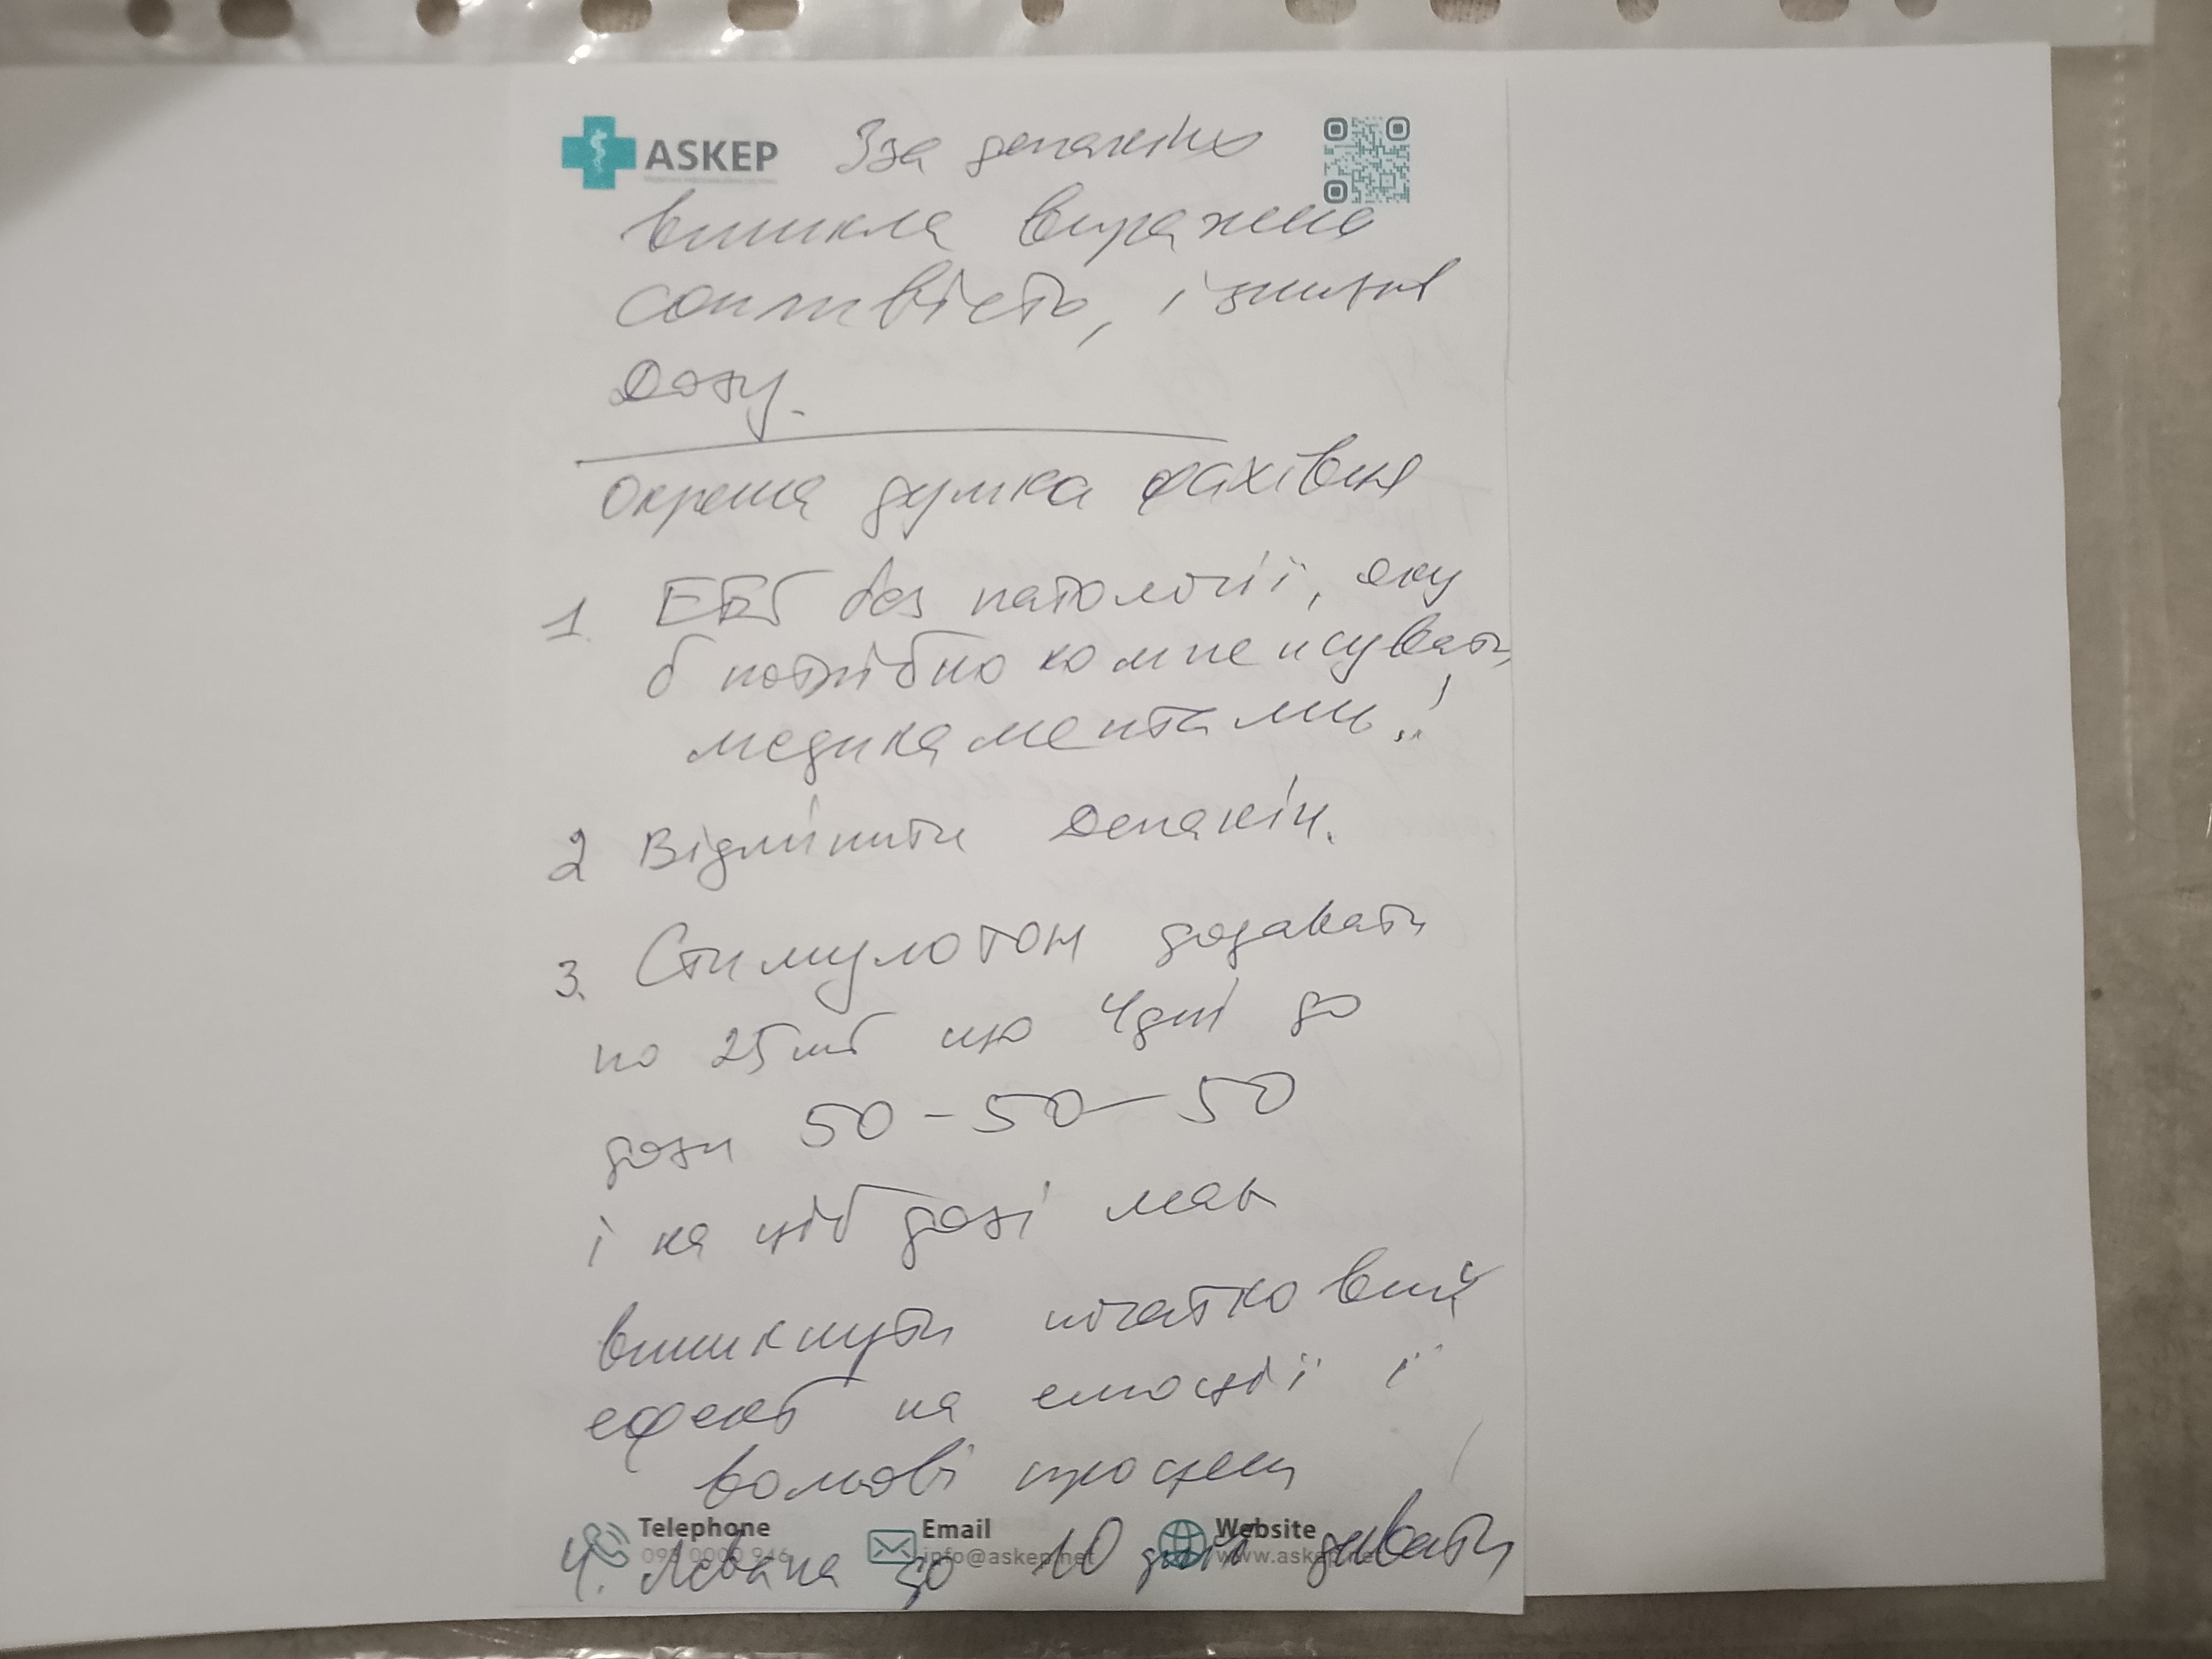 ASKEP Зза депакіну
виникла виражена
сонливість, і знитив
Дозу.
Окрема думка фахівця
1. ЕЕГ без патології, яку
б потрібно компенсувати
медикаментами..!
2 Відмінити Депакін.
3. Стимулотон додавати
по 25мг що 4дні до
дози 50-50-50
і на цій дозі має
виникнути початковий
ефект на емоції і
вольові процеси
Telephone Email Website
info@askep.net www.askep.net
4. Левана до 10 днів давати